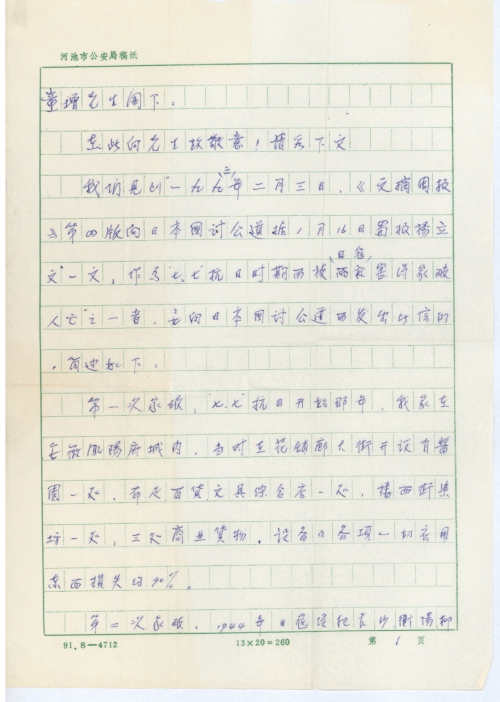 河池市公安局稿纸
童增先生阁下：
在此向先生致敬意！请看下文
我们见到“一九九三年二月三日，《文摘周报
》第四版向日本国讨公道据1月16日 报杨立
文”一文，作为“七.七”抗日时期而被日寇 害得家破
人亡之一者，要向日本国讨公道而发出此信的
，简述如下：
第一次家破，“七.七”抗日开始那年，我家在
安徽凤阳府城内，当时在花铺廊大街开设有酱
园一处，布疋百货文具综合店一处，西街
坊一处，三处商业货物，设备及各项一切家用
东西损失约90%。
第二次家破，1944年日寇侵犯长沙衡阳柳
91.8—4712 13×20=260 第 1 页